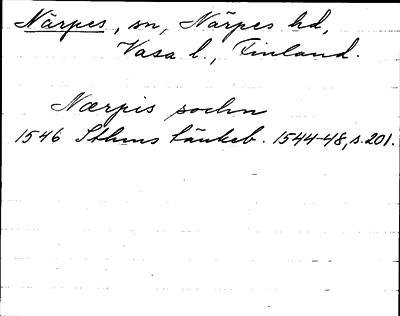 Närpes, sn, Närpes hd,
Vasa l., Finland.
Nærpis sochn
1546 Sthms tänkeb. 1544-48, s. 201.